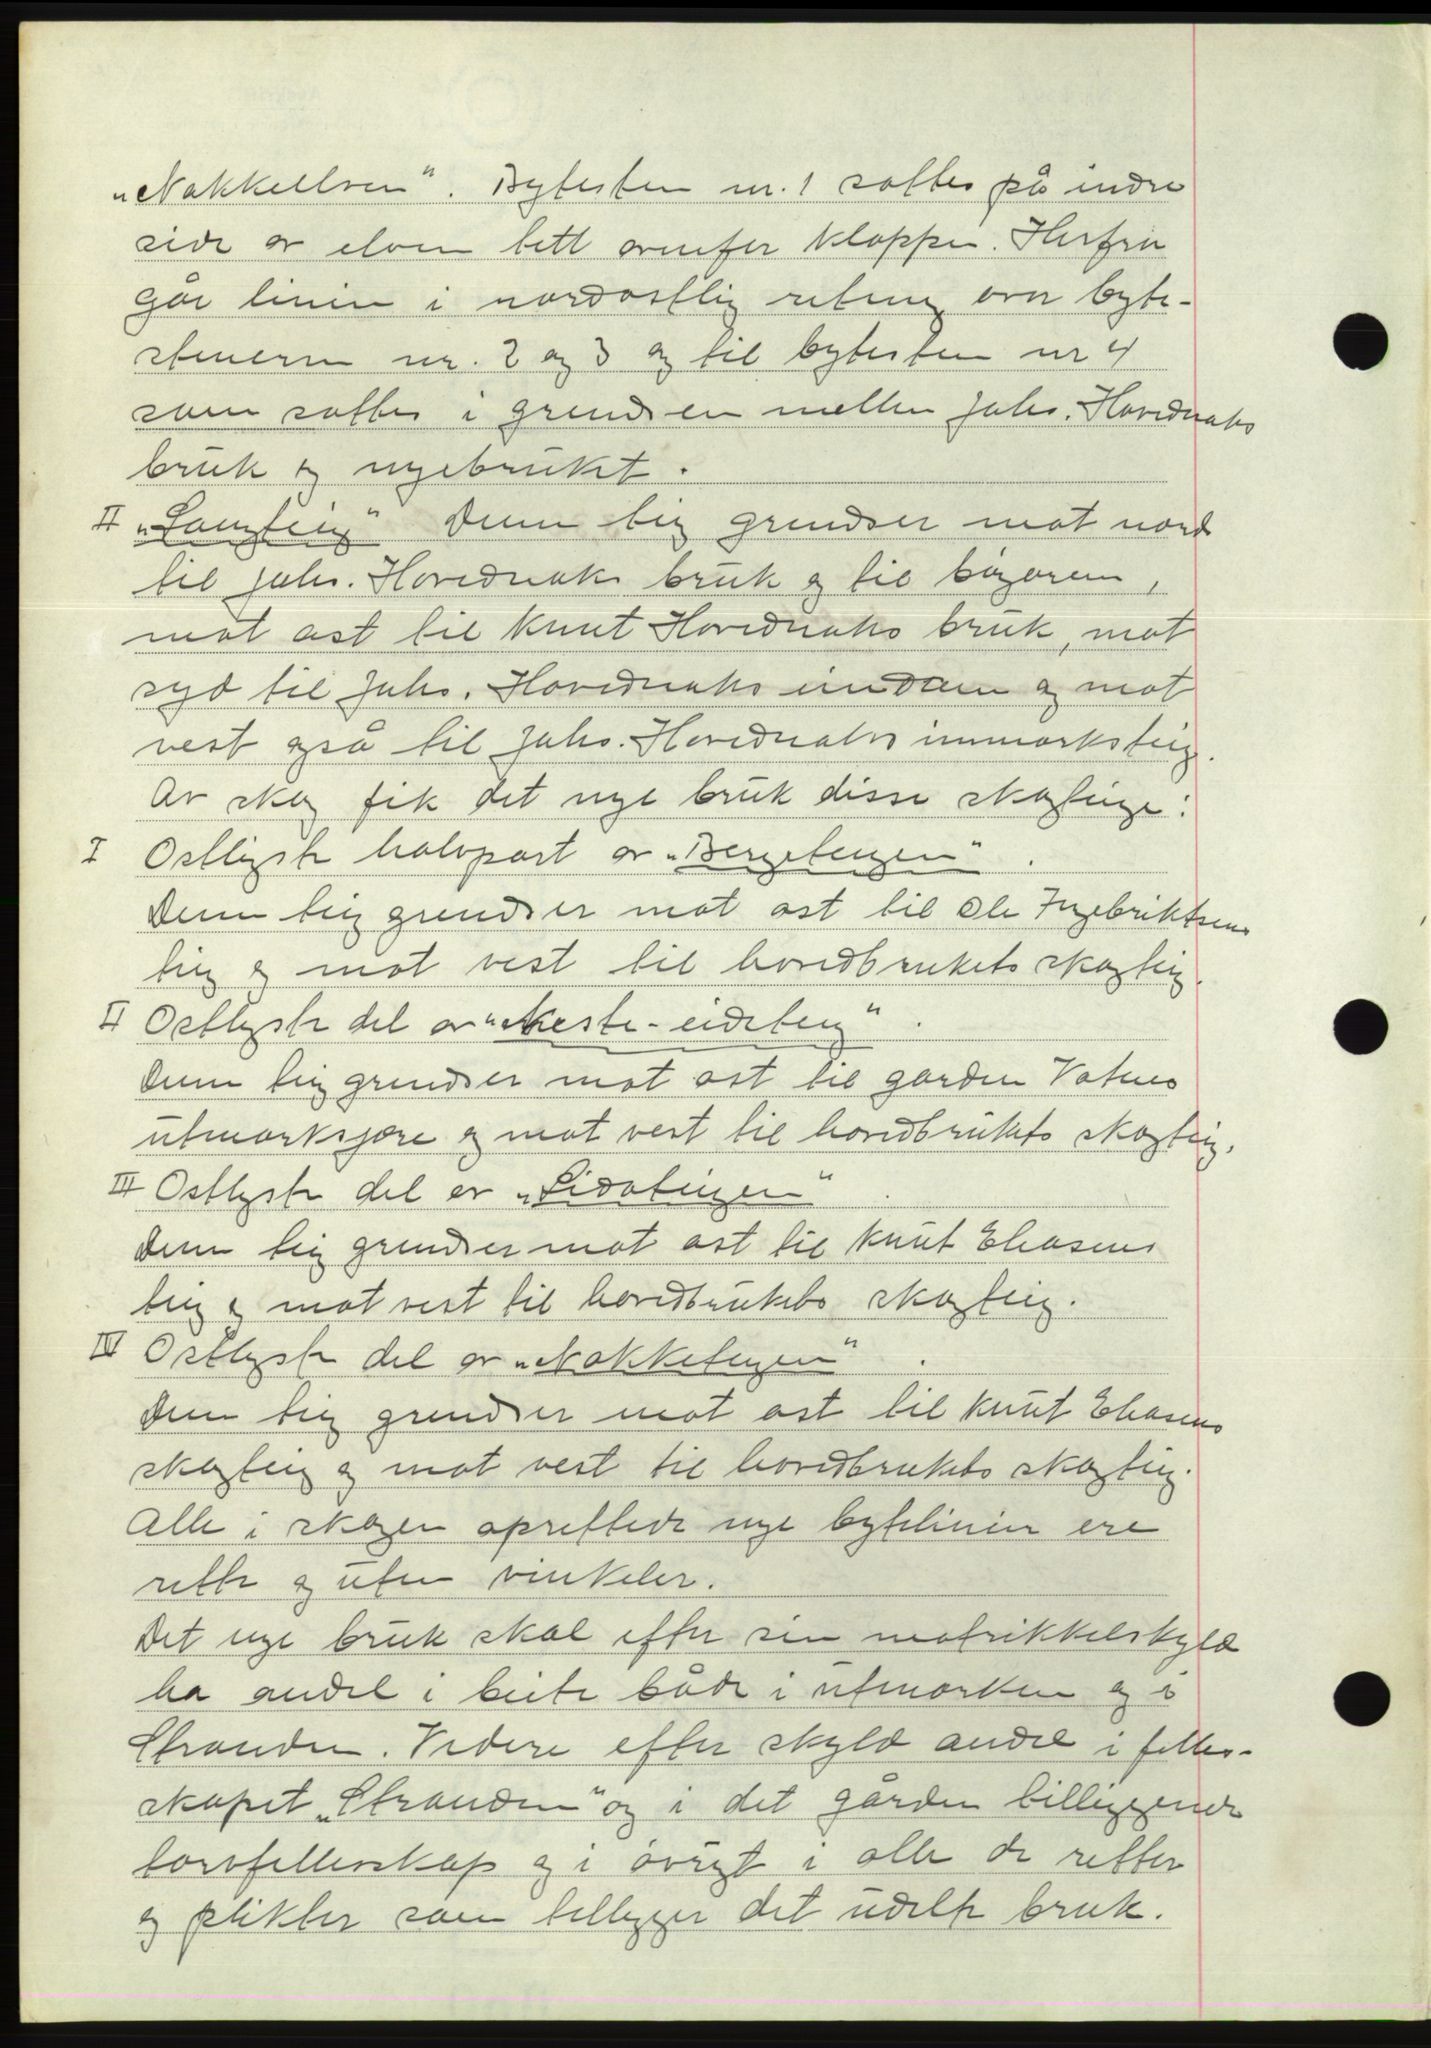 „Nakkelven". Bytesten nr. 1 sattes på indre
side av elven tett ovenfor kloppen. Herfra
går linien i nordostlig retning over byte-
stenerne nr. 2 og 3 og til bytesten nr 4
som sattes i grendsen mellem Johs. Hovdenaks
bruk og nyebruket.
II „Langteig" Denne teig grendser mot nord
til Johs. Hovdenaks bruk og til
mot ost til Knut Hovdenaks bruk, mot
syd til Johs. Hovdenaks og mot
vest også til Johs. Hovdenaks innmarksteig.
Av skog fik det nye bruk disse skogteige:
I Ostligste halvpart av „Bergeteigen".
Denne teig grendser mot ost til Ole Ingebriktsens
teig og mot vest til hovedbrukets skogteig.
II Ostligste del av „Neste-eidsteig".
Denne teig grendser mot ost til garden Vatnes
utmarksjore og mot vest til hovedbrukets skogteig.
III Ostligste del av „Lidateigen".
Denne teig grendser mot ost til Knut Eliasens
teig og mot vest til hovedbrukets skogteig.
IV Ostligste del av „Nakketeigen".
Denne teig grendser mot ost til Knut Eliasens
skogteig og mot vest til hovedbrukets skogteig.
Alle i skogen oprettede nye bytelinier ere
rette og uten vinkeler.
Det nye bruk skal efter sin matrikkelskyld
ha andel i beite både i utmarken og i
Stranden. Videre efter skyld andel i felles-
skapet „Stranden" og i det gården tilliggende
torvfellesskap og i øvrigt i alle de retter
og plikter som tilligger det udelte bruk.